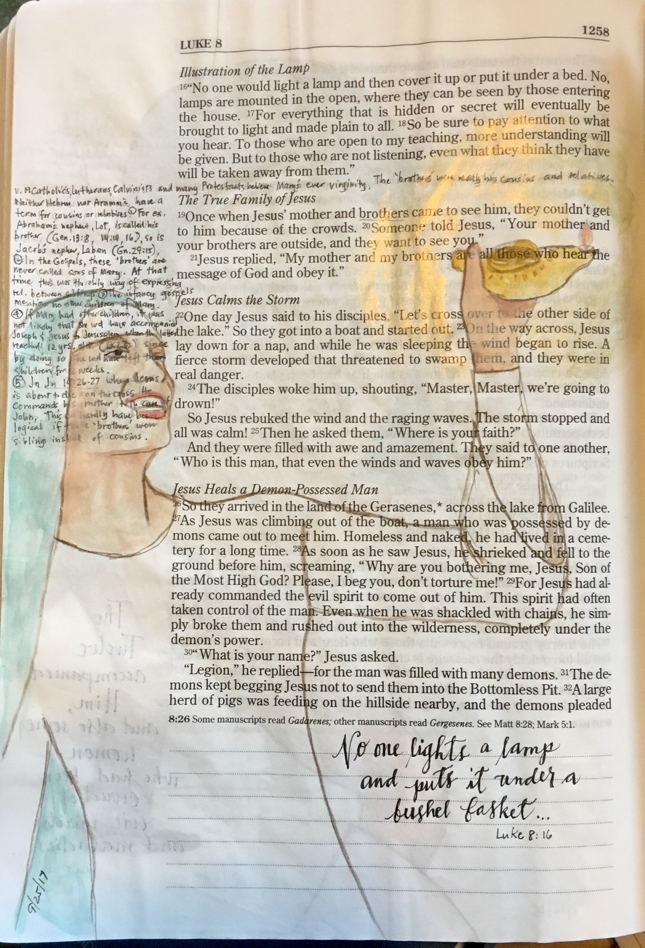 LUKE 8
1258
Illustration of the Lamp
16“No one would light a lamp and then cover it up or put it under a bed. No,
lamps are mounted in the open, where they can be seen by those entering
the house. 17For everything that is hidden or secret will eventually be
brought to light and made plain to all. 18So be sure to pay attention to what
you hear. To those who are open to my teaching, more understanding will
be given. But to those who are not listening, even what they think they have
will be taken away from them.”
v. 19 Catholics, Lutherans, Calvinists and many Protestants believe Mary's ever virginity. The "brothers" were really his cousins and relatives.
Neither Hebrew nor Aramaic have a
term for cousins or relatives ① For ex.
Abraham's nephew, Lot, is called his
brother (Gen. 13:8, 14:14, 16), so is
Jacob's nephew, Laban (Gn. 29:15).
② In the Gospels, these "brothers" are
never called sons of Mary. At that
time this was the only way of expressing
rel. between ③ The infancy gospels
mention no other children of Mary.
④ If Mary had other children, it was
not likely that she wd have accompanied
Joseph & Jesus to Jerusalem when he had
reached 12 yrs.
by doing so she wd have left them
children for weeks.
⑤ In Jn 19:26-27 when Jesus
is about to die on the cross, He
commands his mother care of
John. This hardly have been
logical if the "brothers" were
siblings instead of cousins.
The True Family of Jesus
19Once when Jesus’ mother and brothers came to see him, they couldn’t get
to him because of the crowds. 20Someone told Jesus, “Your mother and
your brothers are outside, and they want to see you.”
21Jesus replied, “My mother and my brothers are all those who hear the
message of God and obey it.”
Jesus Calms the Storm
22One day Jesus said to his disciples, “Let’s cross over to the other side of
the lake.” So they got into a boat and started out. 23On the way across, Jesus
lay down for a nap, and while he was sleeping the wind began to rise. A
fierce storm developed that threatened to swamp them, and they were in
real danger.
24The disciples woke him up, shouting, “Master, Master, we’re going to
drown!”
So Jesus rebuked the wind and the raging waves. The storm stopped and
all was calm! 25Then he asked them, “Where is your faith?”
And they were filled with awe and amazement. They said to one another,
“Who is this man, that even the winds and waves obey him?”
Jesus Heals a Demon-Possessed Man
26So they arrived in the land of the Gerasenes,* across the lake from Galilee.
27As Jesus was climbing out of the boat, a man who was possessed by de-
mons came out to meet him. Homeless and naked, he had lived in a ceme-
tery for a long time. 28As soon as he saw Jesus, he shrieked and fell to the
ground before him, screaming, “Why are you bothering me, Jesus, Son of
the Most High God? Please, I beg you, don’t torture me!” 29For Jesus had al-
ready commanded the evil spirit to come out of him. This spirit had often
taken control of the man. Even when he was shackled with chains, he sim-
ply broke them and rushed out into the wilderness, completely under the
demon’s power.
30“What is your name?” Jesus asked.
“Legion,” he replied—for the man was filled with many demons. 31The de-
mons kept begging Jesus not to send them into the Bottomless Pit. 32A large
herd of pigs was feeding on the hillside nearby, and the demons pleaded
8:26 Some manuscripts read Gadarenes; other manuscripts read Gergesenes. See Matt 8:28; Mark 5:1.
No one lights a lamp
and puts it under a
bushel basket...
Luke 8:16
9/25/17